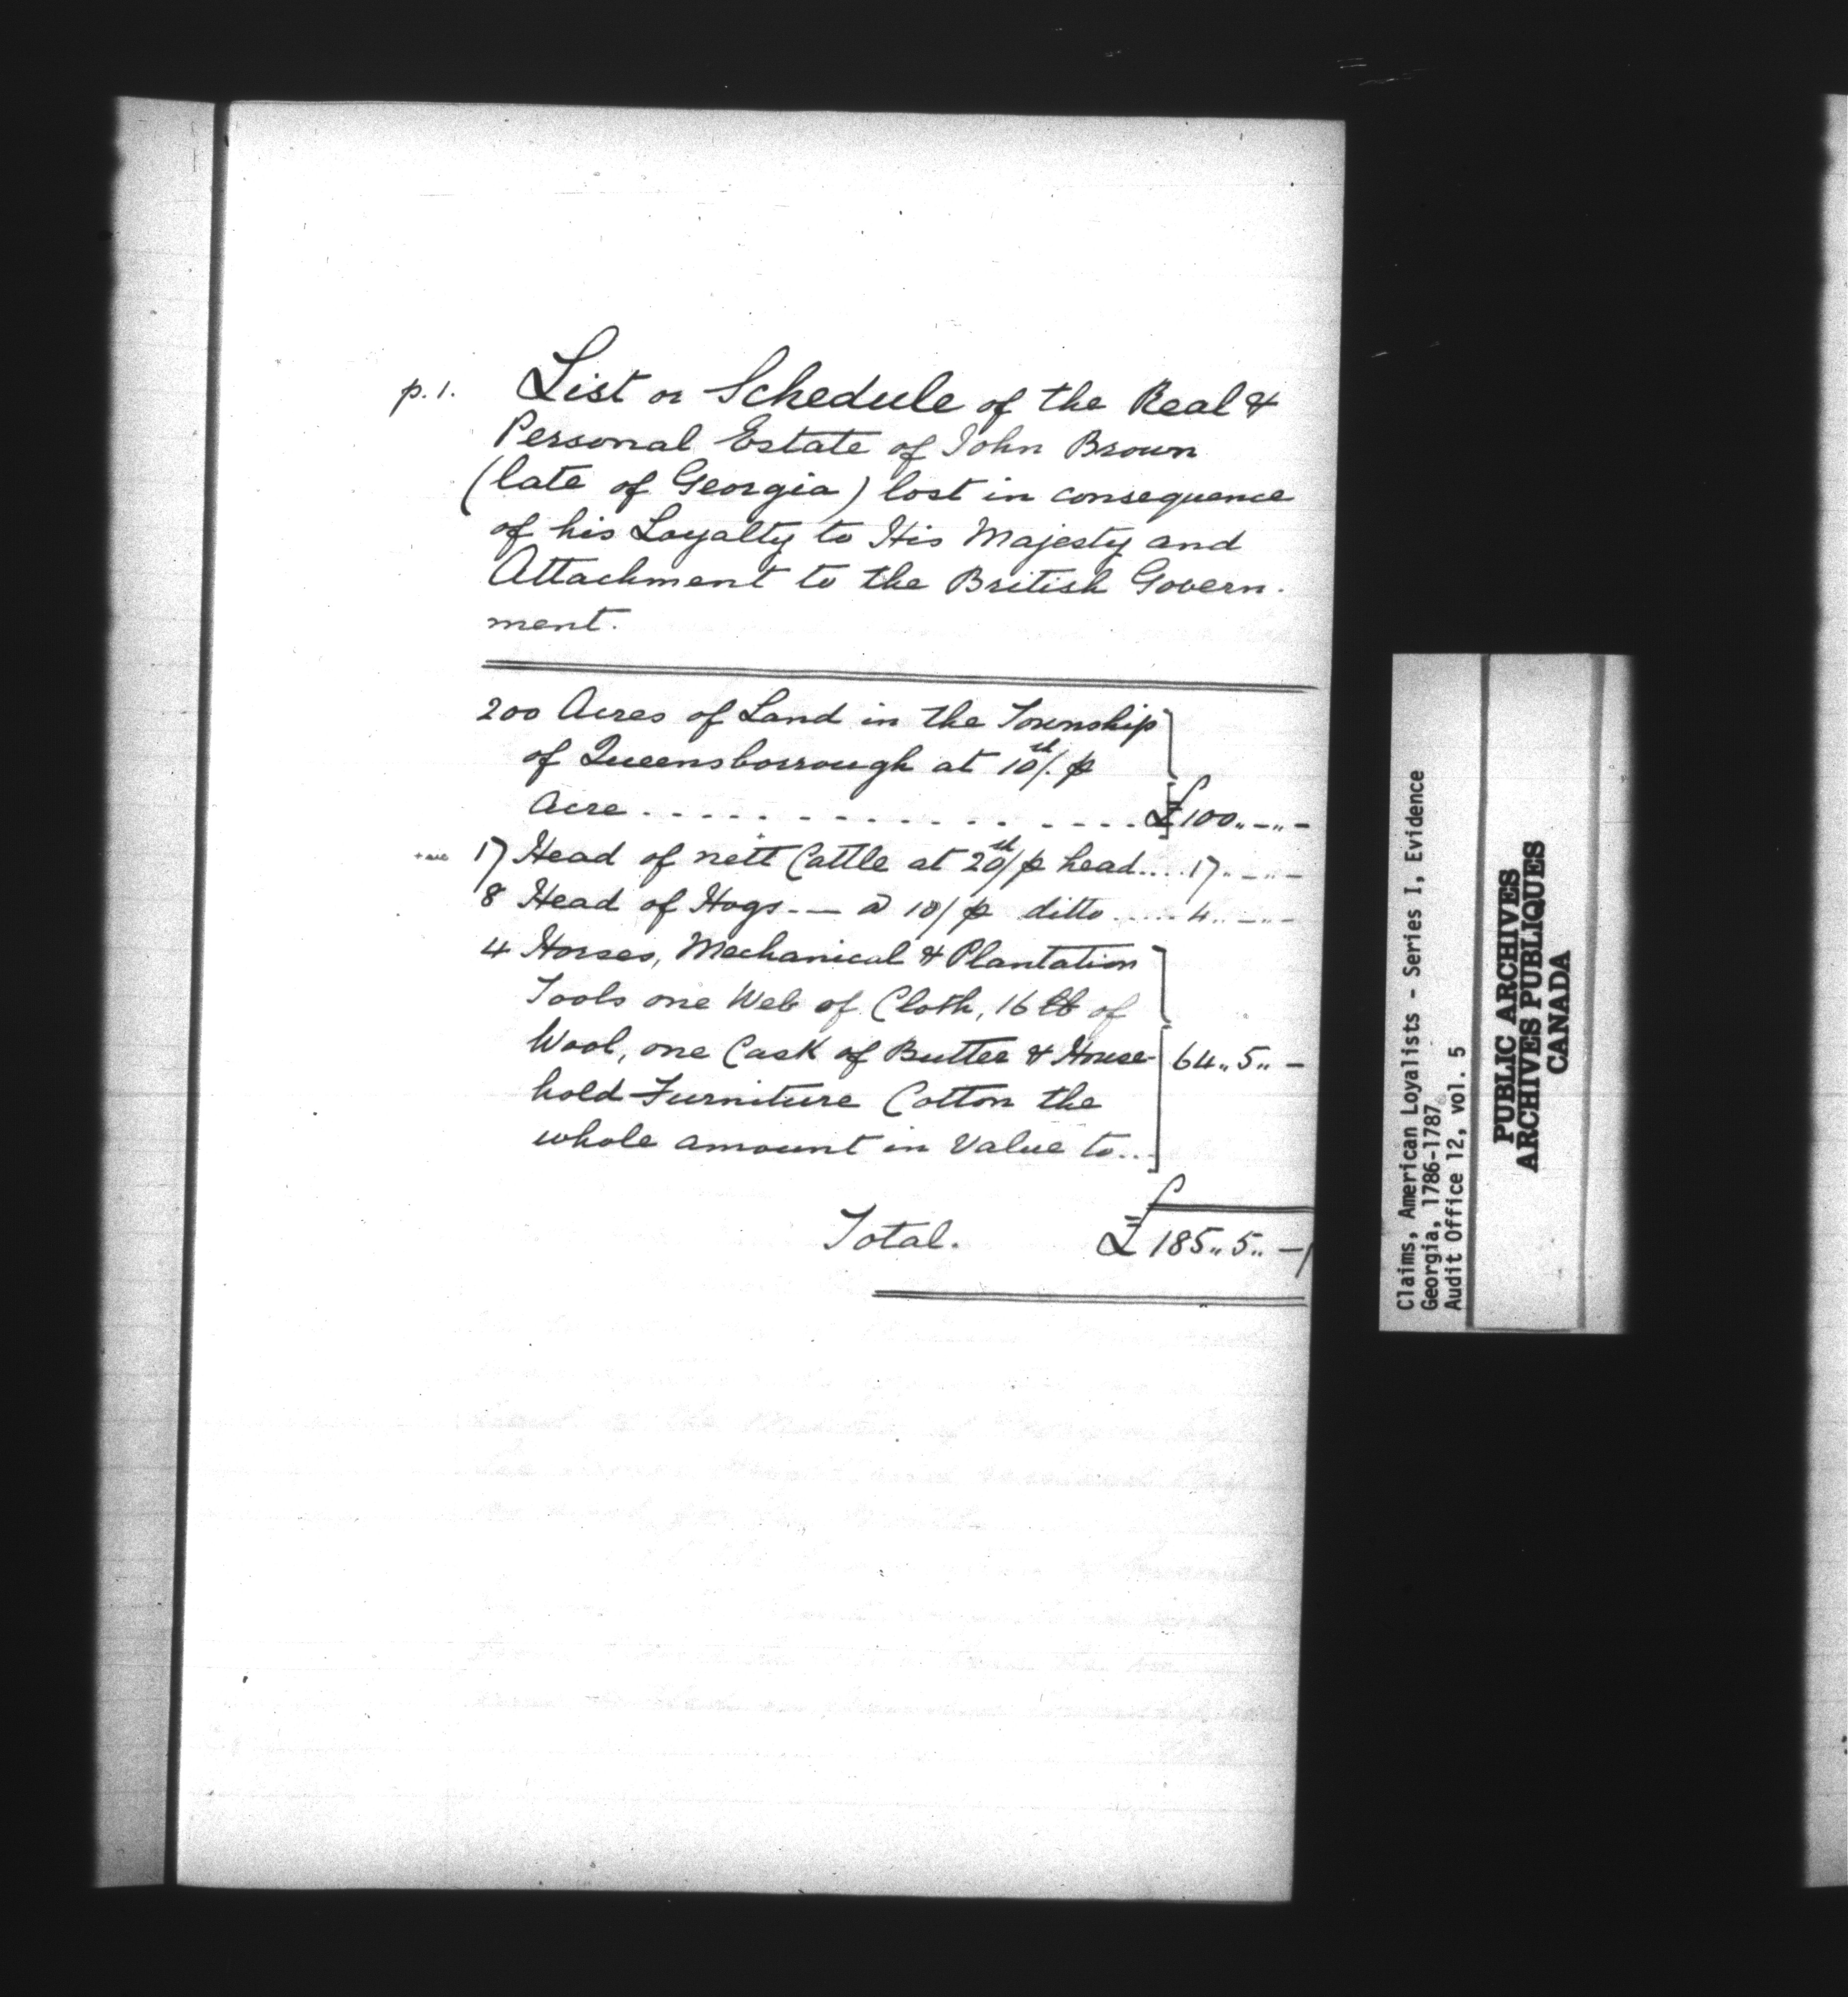 p.1. List or Schedule of the Real &
Personal Estate of John Brown
(late of Georgia) lost in consequence
of his Loyalty to His Majesty and
Attachment to the British Govern-
ment.
200 Acres of Land in the Township
of Queensborrough at 10/. ⅌
Acre . . . . . . . . . . . . . . £100.. -.. -
17 Head of nett Cattle at 20/ ⅌ head.... 17.. -.. -
8 Head of Hogs.-- @ 10/ ⅌ ditto ..... 4.. -.. -
4 Horses, Mechanical & Plantation
Tools one Web of Cloth, 16 lb of
Wool, one Cask of Butter & House-
64.. 5.. -
hold Furniture Cotton the
whole amount in Value to...
Total. £ 185.. 5.. -
Claims, American Loyalists - Series I, Evidence
Georgia, 1786-1787
Audit Office 12, vol. 5
PUBLIC ARCHIVES
ARCHIVES PUBLIQUES
CANADA